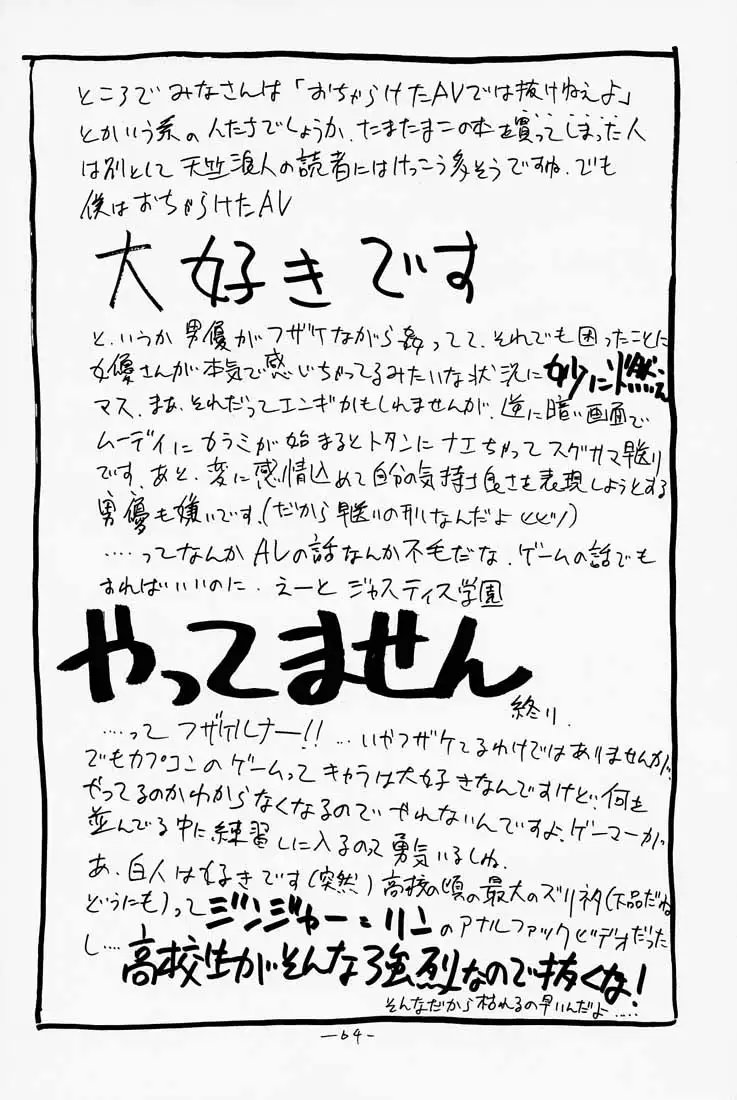 ところでみなさんは「おちゃらけたAVでは抜けねえよ」
とかいう系の人たちでしょうか、たまたまこの本を買ってしまった人
は別として天竺浪人の読者にはけっこう多そうですね、でも
僕はおちゃらけたAV
大好きです
と、いうか男優がフザケながら姦ってて、それでも困ったことに
女優さんが本気で感じちゃってるみたいな状況に妙に燃え
マス、まあ、それだってエンギかもしれませんが、逆に暗い画面で
ムーディにカラミが始まるとトタンにナエちゃってスグサマ早送り
です、あと、変に感情込めて自分の気持ち良さを表現しようとする
男優も嫌いです、(だから早送りの刑なんだよ
……ってなんかAVの話なんか不毛だな、ゲームの話でも
すればいいのに、えーと ジャスティス学園
やってません
終り、
……って フザケルナー!! …いやフザケてるわけではありませんが、
でもカプコンのゲームってキャラは大好きなんですけど、何を
やってるのかわからなくなるのでやれないんですよ、ゲーマーがっ
並んでる中に練習しに入るのって勇気いるしね、
あ、白人は好きです(突然)高校の頃の最大のズリネタ(下品だね
どうにも)って ジンジャー=リン のアナルファックビデオだった
し…… 高校生がそんな強烈なので抜くな!
そんなだから枯れるの早いんだよ……
—64—